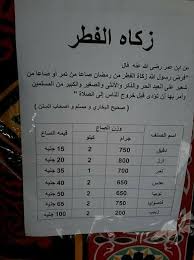 زكاه الفطر
عن ابن عمر رضى الله عنه قال
"فرض رسول الله زكاة الفطر من رمضان صاعا من تمر أو صاعا من
شعير على العبد الحر والذكر والأنثى والصغير والكبير من المسلمين
وأمر بها أن تؤدى قبل خروج الناس إلى الصلاة"
( صحيح البخاري و مسلم و أصحاب السنن )
اسم الصنف وزن الصاع قيمة الصاع
جرام كيلو
دقيق 750 2 15 جنيه
ارز 800 2 20 جنيه
700 2 35 جنيه
عدس 650 2 40 جنيه
لوبيا 650 2 60 جنيه
فاصوليا 750 2 65 جنيه
زبيب 200 2 100 جنيه